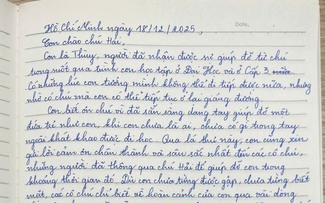 Hồ Chí Minh ngày 18/12/2025,
Date.
Con chào chú Hải,
Con là Thủy, người đã nhận được sự giúp đỡ từ chú
trong suốt quá trình con học tập ở Đại Học và ở Cấp 3
Có những lúc con tưởng mình không thể đi tiếp được nữa, nhưng
nhờ có chú mà con có thể tiếp tục ở lại giảng đường.
Con biết ơn chú vì đã sẵn sàng dang tay giúp đỡ một
đứa trẻ như con, khi con chưa là ai, chưa có gì trong tay
ngoài khát khao được đi học. Qua lá thư này, con cũng xin
gửi lời cảm ơn chân thành và sâu sắc nhất đến các cô chú,
những người đã thông qua chú Hải để giúp đỡ con trong
khoảng thời gian đó. Dù con chưa từng được gặp, chưa từng biết
mặt, các cô chú chỉ biết về hoàn cảnh của con qua vài dòng